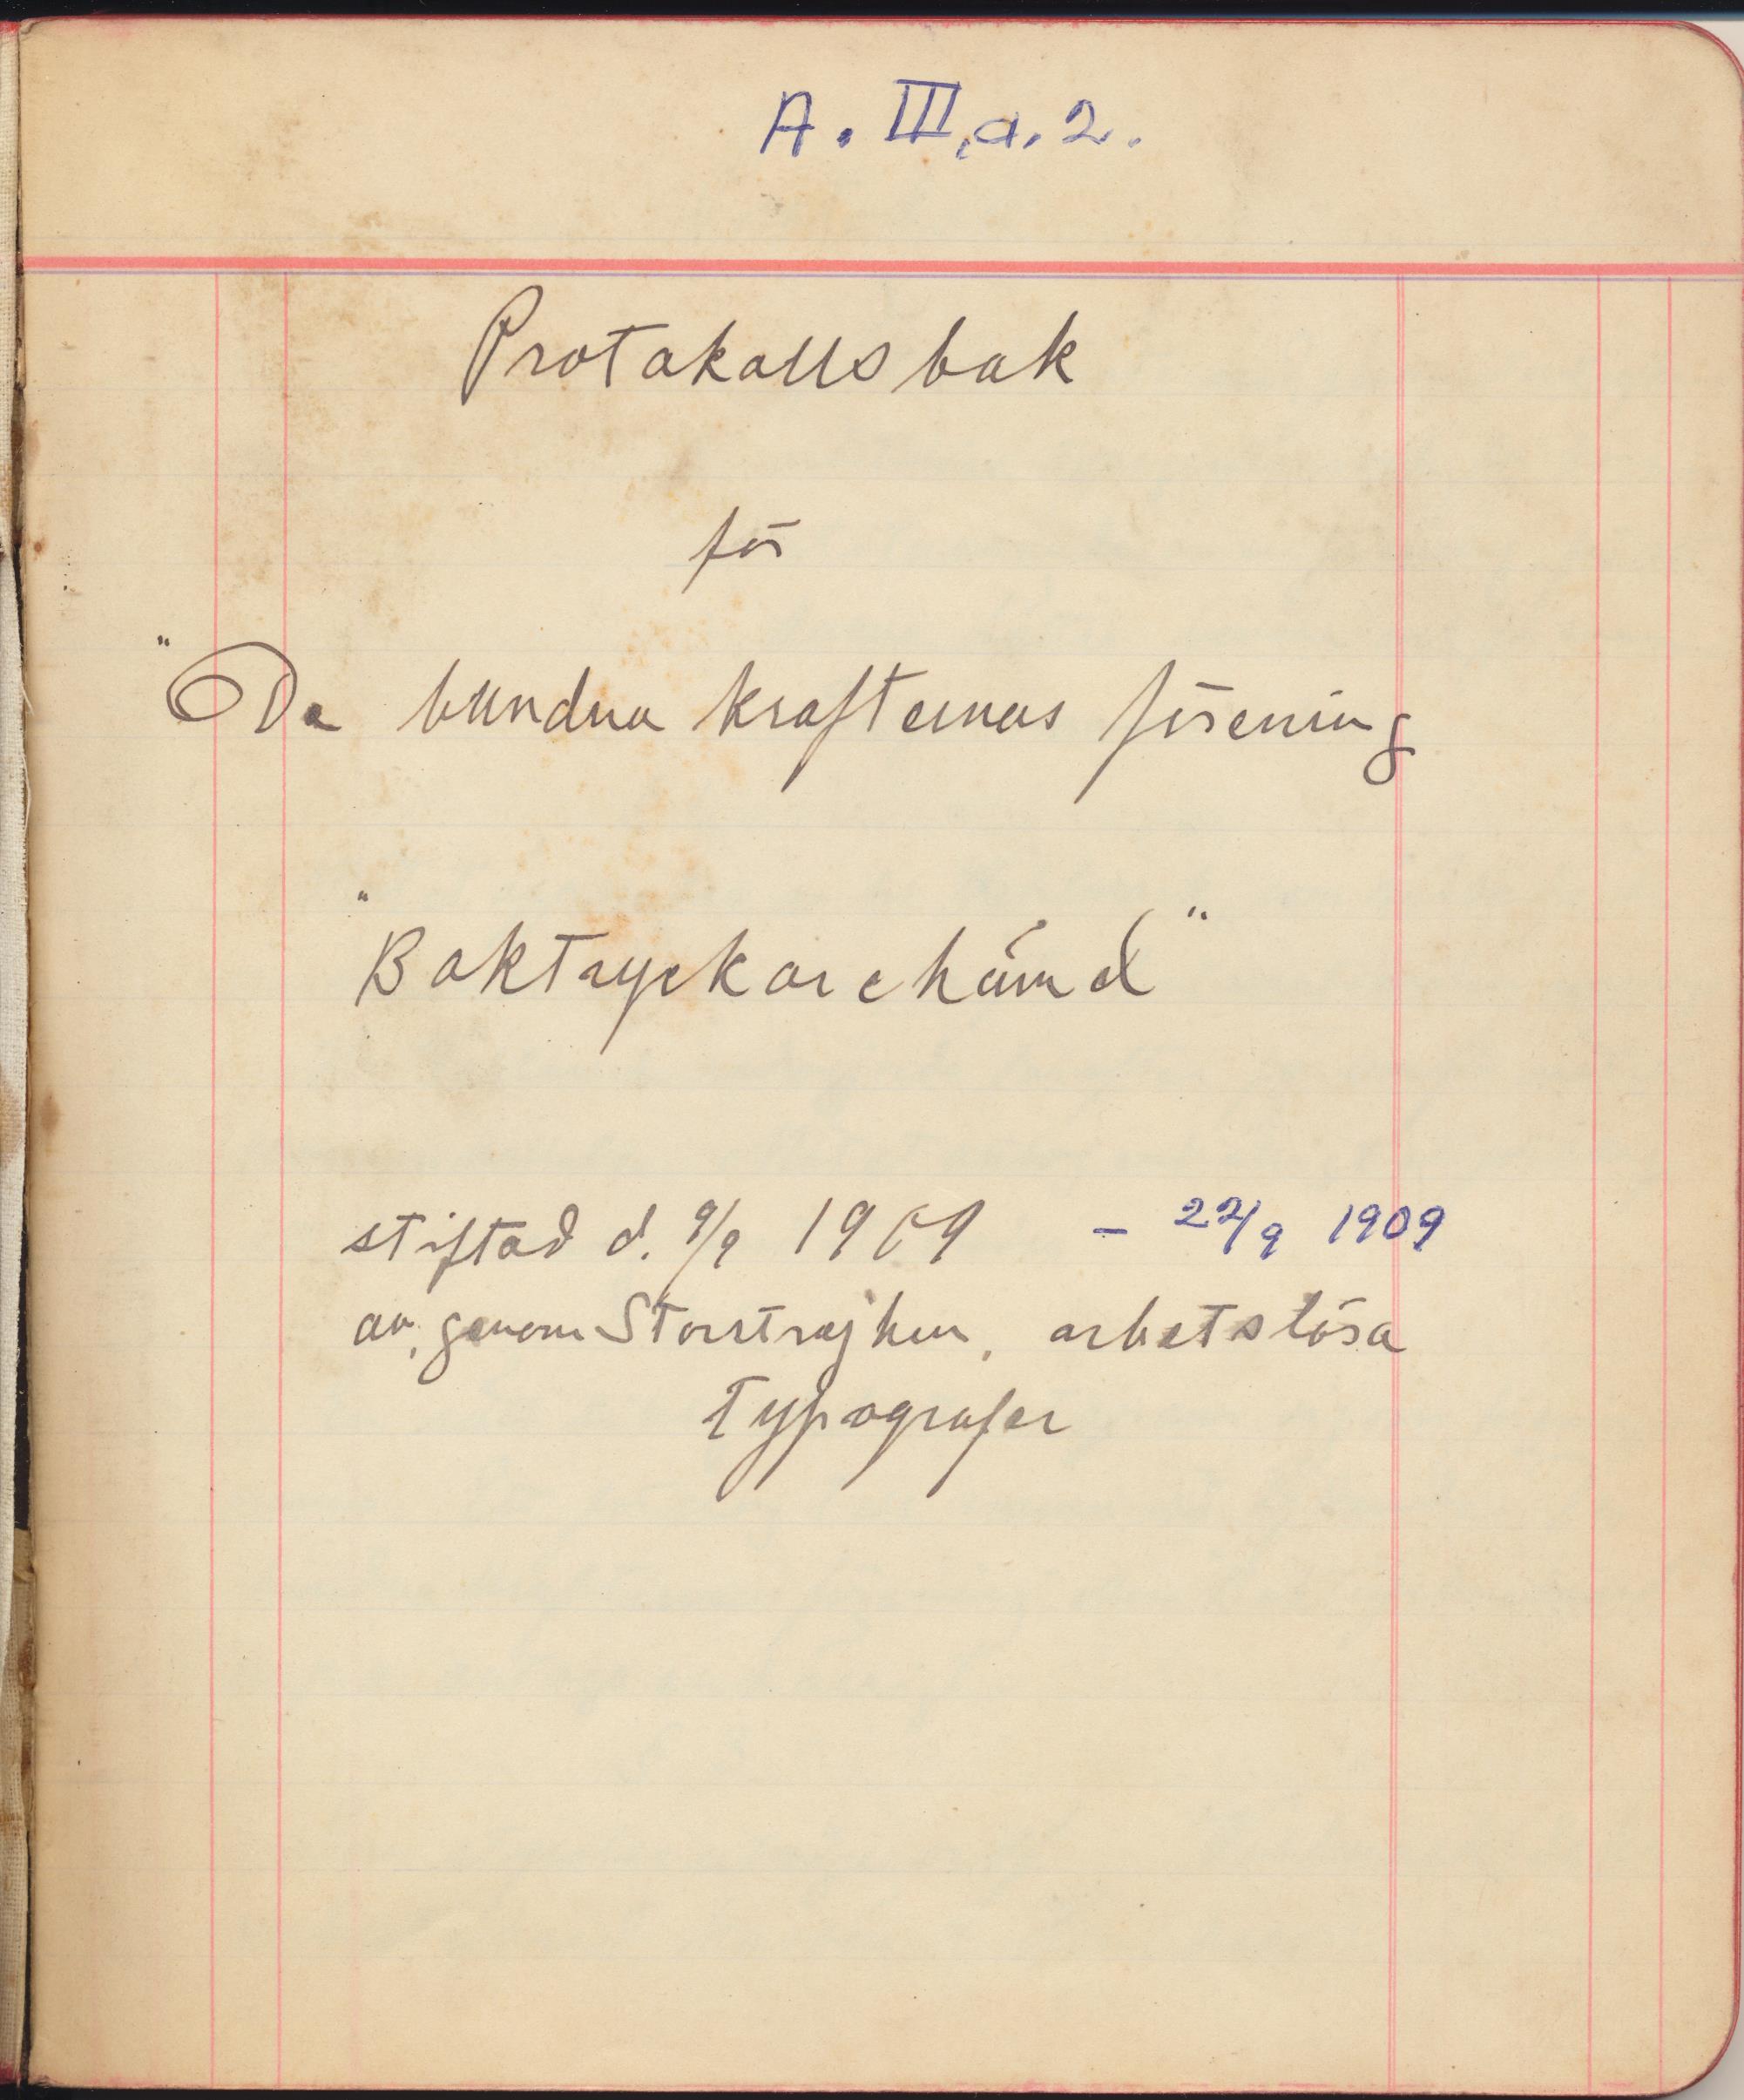 A. III, a. 2.
Protokollsbok
för
"De bundna krafternas förening
"Boktryckarehämd"
stiftad d. 9/9 1909 – 22/9 1909
av, genom Storstrejken, arbetslösa
Typografer